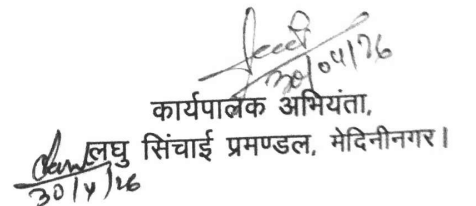 30/04/26
कार्यपालक अभियंता,
लघु सिंचाई प्रमण्डल, मेदिनीनगर।
30/4/26